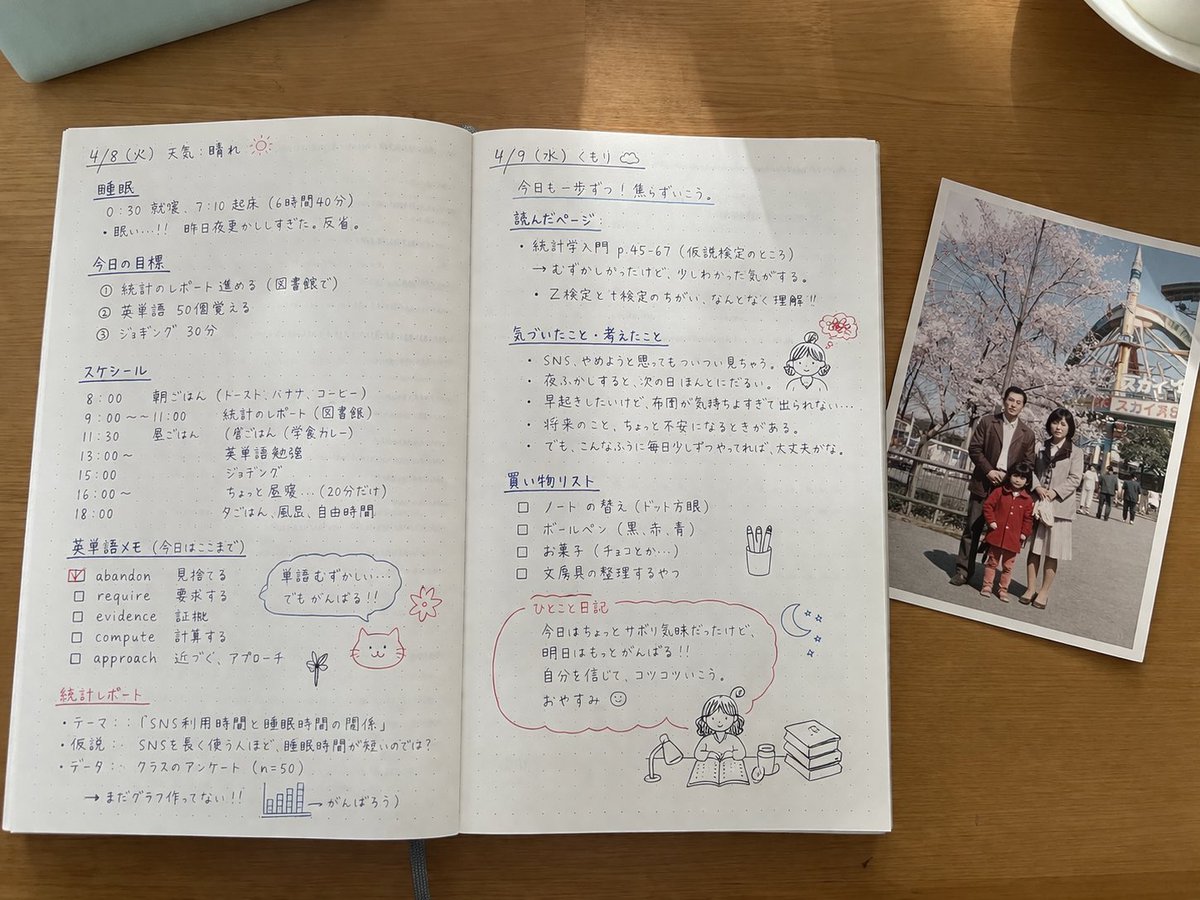 4/8(火) 天気:晴れ
睡眠
0:30 就寝、7:10 起床 (6時間40分)
・眠い…!! 昨日夜更かししすぎた。反省。
今日の目標
① 統計のレポート進める (図書館で)
② 英単語 50個覚える
③ ジョギング 30分
スケシール
8:00 朝ごはん (トースト、バナナ、コーヒー)
9:00~~11:00 統計のレポート (図書館)
11:30 昼ごはん (ごはん (学食カレー)
13:00~ 英単語勉強
15:00 ジョギング
16:00~ ちょっと昼寝…(20分だけ)
18:00 夕ごはん、風呂、自由時間
英単語メモ (今日はここまで)
abandon 見捨てる
require 要求する
evidence 証
compute 計算する
approach 近づく、アプローチ
単語むずかしい…
でもがんばる!!
統計レポート
・テーマ::「SNS利用時間と睡眠時間の関係」
・仮説:・ SNSを長く使う人ほど、睡眠時間が短いのでは?
・データ:・ クラスのアンケート (n=50)
→まだグラフ作ってない!! →がんばろう)
4/9(水) くもり
今日も一歩ずつ!焦らずいこう。
読んだページ:
・統計学入門 p.45-67 (仮説検定のところ)
→むずかしかったけど、少しわかった気がする。
・Z検定とt検定のちがい、なんとなく理解!!
気づいたこと・考えたこと
・SNS、やめようと思ってもついつい見ちゃう。
・夜ふかしすると、次の日ほんとにだるい。
・早起きしたいけど、布団が気持ちよすぎて出られない…
・将来のこと、ちょっと不安になるときがある。
・でも、こんなふうに毎日少しずつやってれば、大丈夫かな。
買い物リスト
ノートの替え (ドット方眼)
ボールペン (黒、赤、青)
お菓子 (チョコとか…)
文房具の整理するやつ
ひとこと日記
今日はちょっとサボり気味だったけど、
明日はもっとがんばる!!
自分を信じて、コツコツいこう。
おやすみ
スカイ
スカイ